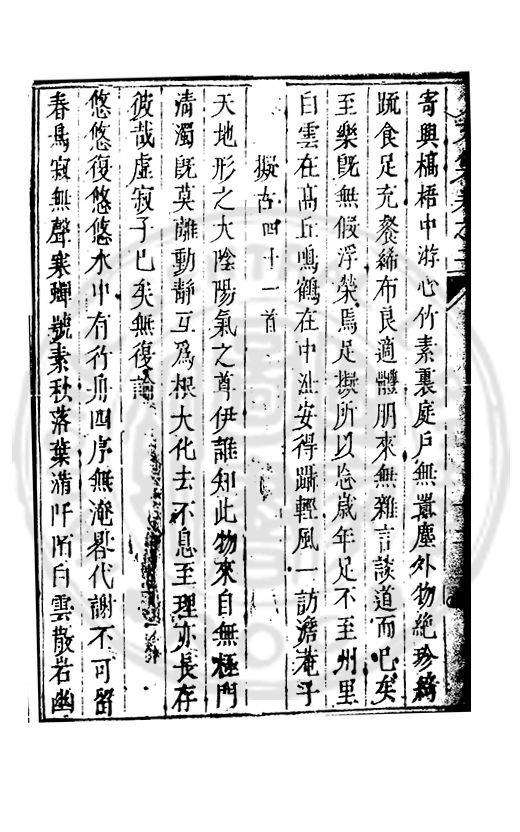 寄興槁梧中游心竹素裏庭戶無囂塵外物絶珍綺
蔬食足充餐絺布良適體朋來無雜言談道而已矣
至樂既無假浮榮焉足擬所以忘歲年足不至州里
白雲在髙丘鳴鶴在中沚安得躡輕風一訪澹菴子
擬古四十一首
天地形之大陰陽氣之尊伊誰知此物來自無極門
清濁既莫離動靜互爲根大化去不息至理亦長存
彼哉虛寂子已矣無復論
悠悠復悠悠水中有行舟四序無淹晷代謝不可留
春鳥寂無聲寒蟬號素秋落葉滿阡陌白雲散岩幽